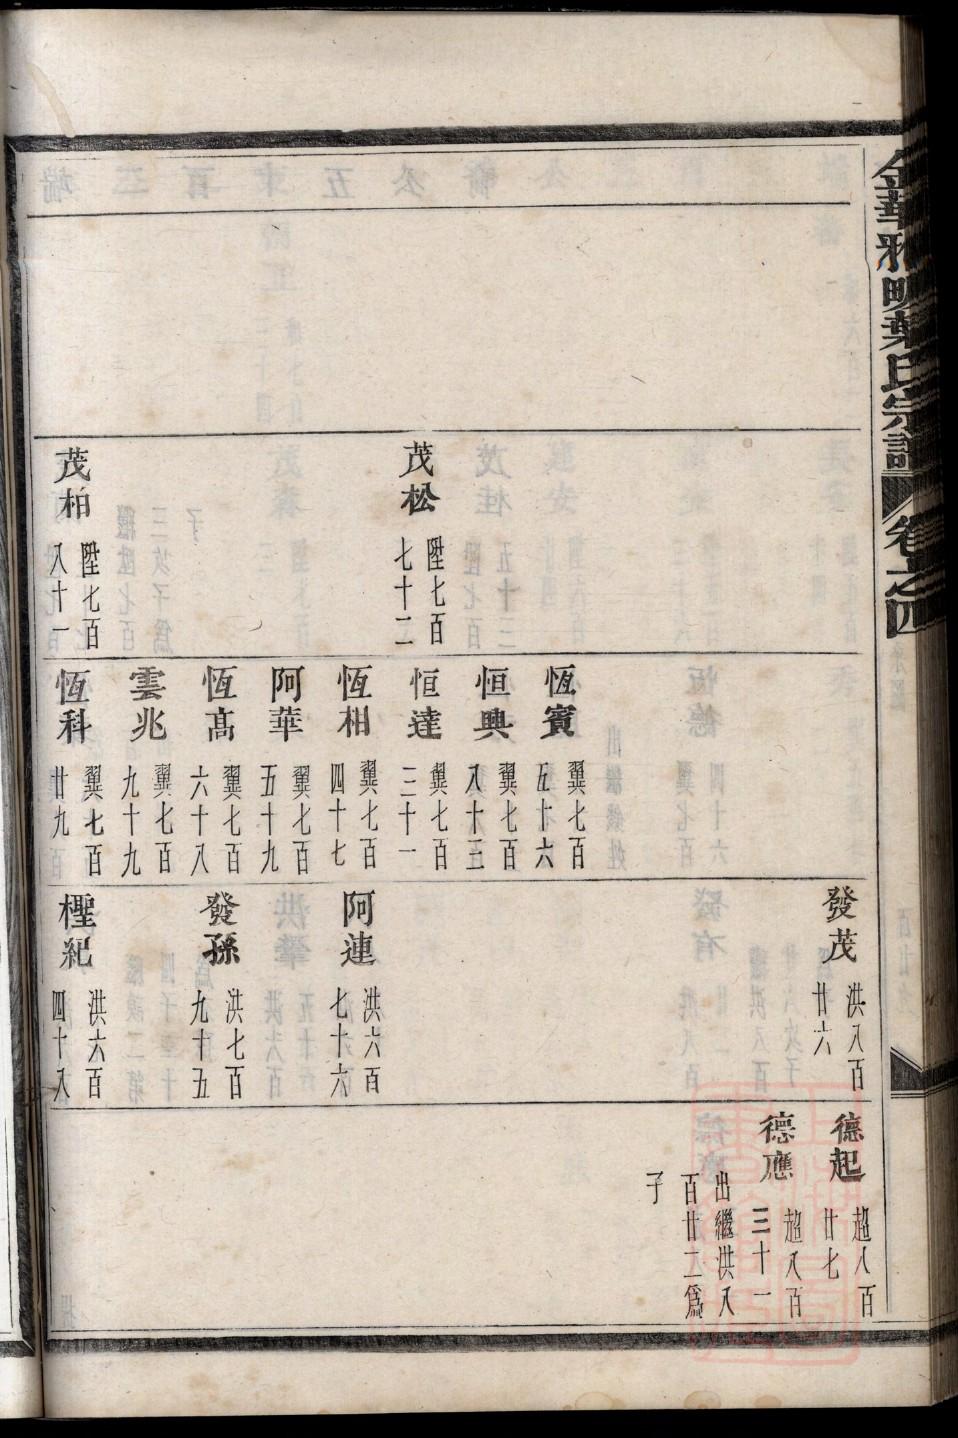 金華邪明葉氏宗譜 卷之四
茂松 陞七百七十二
茂柏 陞七百八十一
恆賓 翼七百五十六
恒興 翼七百八十三
恒達 翼七百三十一
恆相 翼七百四十七
阿華 翼七百五十九
恆高 翼七百六十八
雲兆 翼七百九十九
恆科 翼七百廿九
發茂 洪八百廿六
阿連 洪六百七十六
發孫 洪七百九十五
檉紀 洪六百四十八
德起 超八百廿七
德應 超八百三十一
出繼洪八
百廿二爲
子